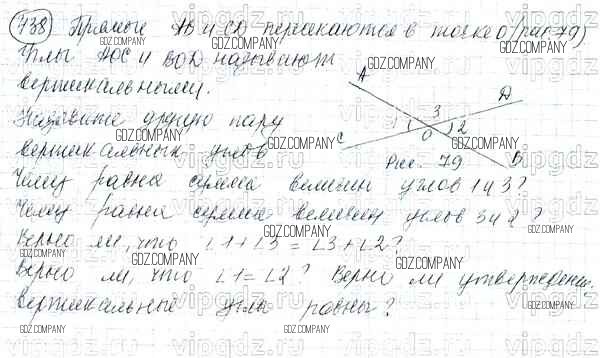 738 Прямые AB и CD пересекаются в точке O (рис 79)
Углы AOC и BOD называют
вертикальными.
Назовите другую пару
вертикальных углов
Чему равна сумма величин углов 1 и 3?
Чему равна сумма величин углов 3 и 2?
Верно ли, что ∠1+∠3=∠3+∠2?
Верно ли, что ∠1=∠2? Верно ли утвержден.
вертикальные углы равны?
A
D
3
1
2
O
C
B
Рис. 79
GDZ.COMPANY
vipgdz.ru